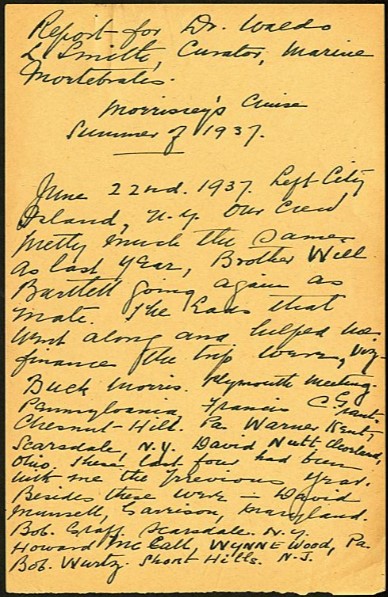 Report for Dr. Waldo
L Smith, Curator, Marine
Invertebrates.
Morrissey's Cruise
Summer of 1937.
June 22nd. 1937. Left City
Island, N.Y. Our Crew
Pretty much the same
as last year, Brother Will
Bartlett going again as
mate. The lads that
went along and helped me
finance the trip were,
Buck Morris. Plymouth Meeting.
Pennsylvania, Francis C Grant.
Chesnut-Hill. Pa Warner Kent,
Scarsdale, N.Y. David Nutt Cleveland,
Ohio. These last four had been
with me the previous year.
Besides these were - David
Munsell, Garrison, Maryland.
Bob. Graff, Scarsdale. N.Y.
Howard McCall, WYNNE Wood, Pa.
Bob. Wurtz. Short Hills. N.J.